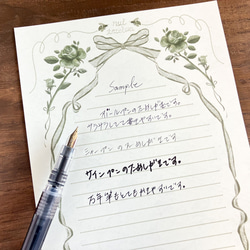 Sample
ボールペンのためしがきです。
サラサラしてて書きやすいです。
シャーペンのためしがきです
サインペンのためしがきです。
万年筆もとてもかきやすいです。